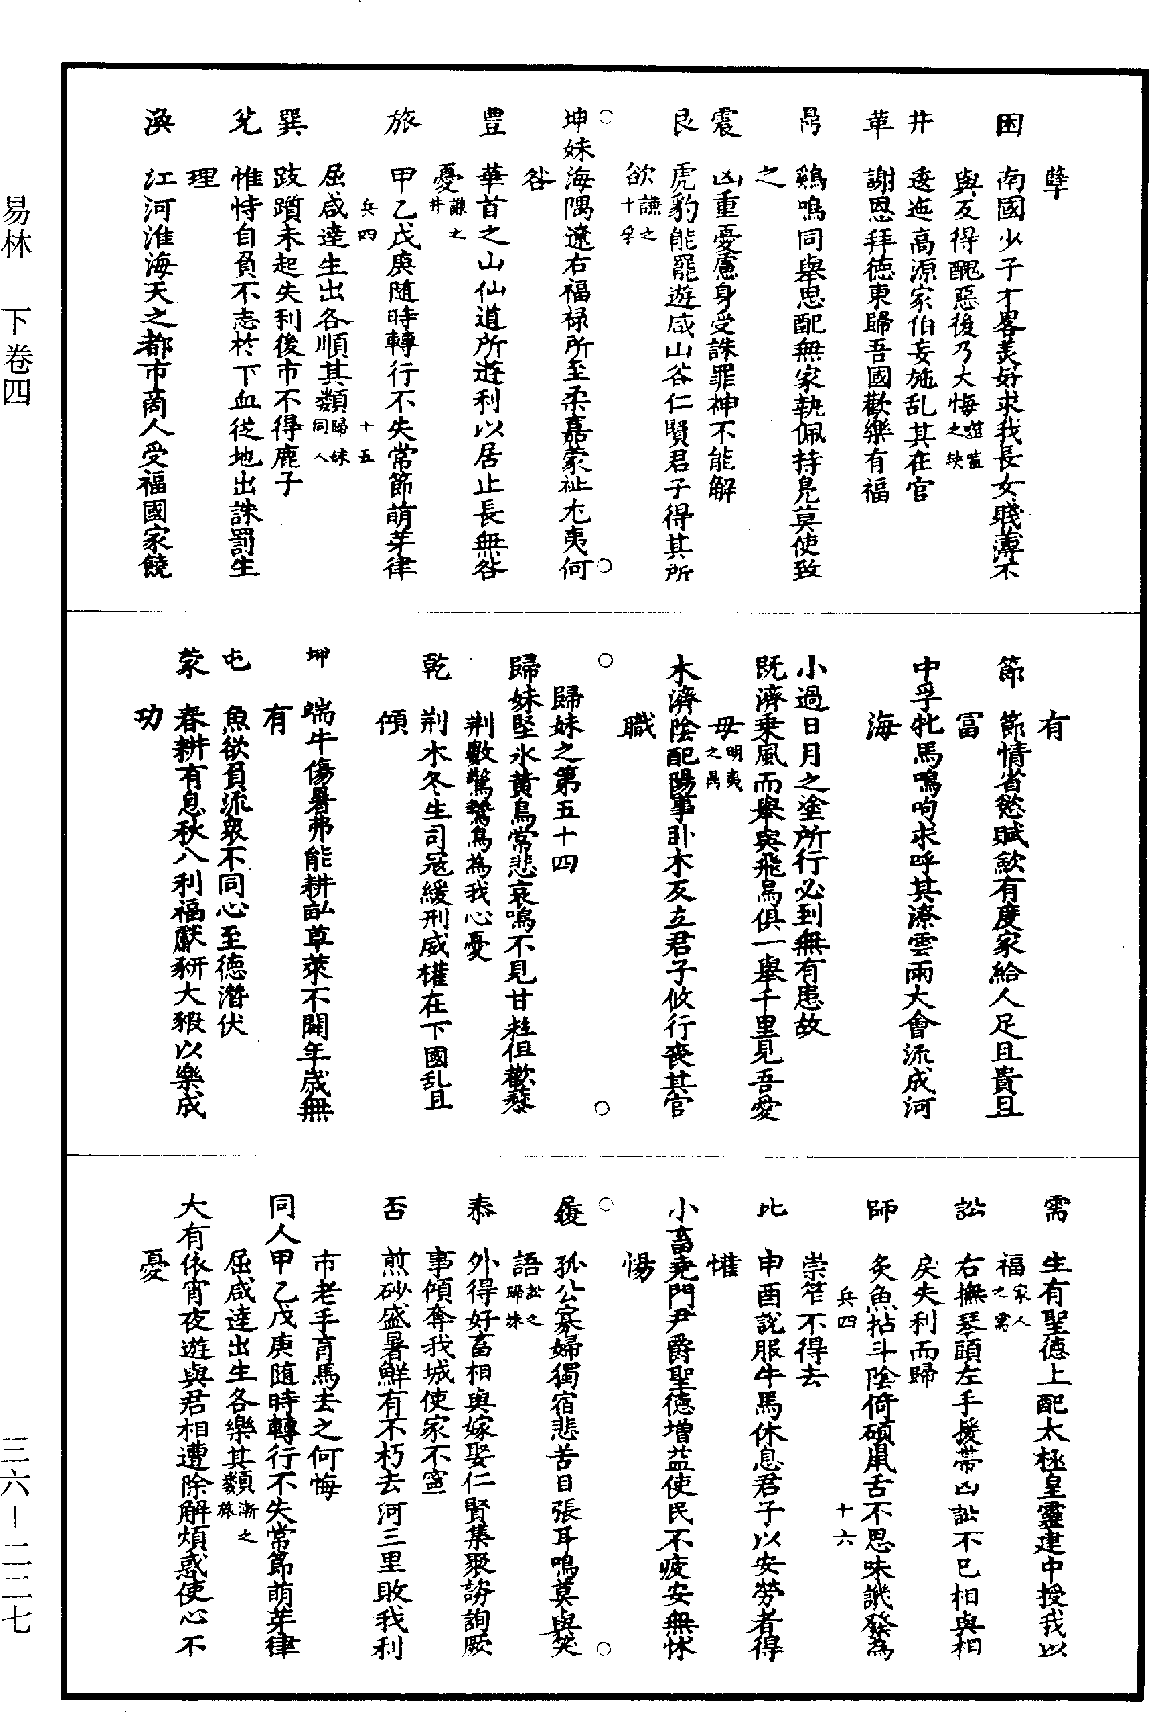 孽
困　南國少子才畧美好求我長女賤薄不
與反得醜惡後乃大悔噬嗑之訣
井　逶迤高源家伯妄施乱其在官
革　謝恩拜德東歸吾國歡樂有福
鼎　鷄鳴同舉思配無家執佩持鳧莫使致
之
震　凶重憂慮身受誅罪神不能解
艮　虎豹能羆遊戲山谷仁賢君子得其所
欲謙之十孚
坤妹海隅遼右福禄所至柔嘉蒙祉尤夷何
咎
豊　華首之山仙道所遊利以居止長無咎
憂謙之井
旅　甲乙戊庚随時轉行不失常節萌芽律
兵四　十五
屈咸達生出各順其類歸妹同人
巽　跂躓未起失利後市不得鹿子
兊　惟恃自負不志於下血從地出誅罰生
理
渙　江河淮海天之都市商人受福國家饒
有
節　節情省慾賦歛有度家給人足且貴且
富
中孚牝馬鳴呴求呼其潦雲雨大會流成河
海
小過日月之塗所行必到無有患故
既濟乗風而舉與飛鳥俱一舉千里見吾愛
母明夷之鼎
未濟陰配陽事卧木反立君子攸行喪其官
職
歸妹之第五十四
歸妹堅氷黄鳥常悲哀鳴不見甘粒但歡藜
荆數驚鷙鳥為我心憂
乾　荆木冬生司冦緩刑威權在下國乱且
傾
坤　喘牛傷暑弗能耕畝草萊不闢年歳無
有
屯　魚欲負流衆不同心至德潛伏
蒙　春耕有息秋入利福獻豜大豭以樂成
功
需　生有聖德上配太極皇靈建中授我以
福家人之需
訟　右撫琴頭左手援帶凶訟不已相與相
戾失利而歸
師　炙魚拈斗陰倚碩鼠舌不思味譏發為
兵四　十六
祟笮不得去
比　申酉說服牛馬休息君子以安勞者得
懽
小畜堯門尹爵聖德增益使民不疲安無怵
惕
履　孤公寡婦獨宿悲苦目張耳鳴莫與笑
語訟之歸妹
泰　外得好畜相與嫁娶仁賢集聚諮詢厥
事傾奪我城使家不寧
否　煎砂盛暑鮮有不朽去河三里敗我利
市老手育馬去之何悔
同人甲乙戊庚随時轉行不失常節萌芽律
屈咸達出生各樂其類漸之旅
大有依宵夜遊與君相遭除解煩惑使心不
憂
易林　下卷四
三六—二二七